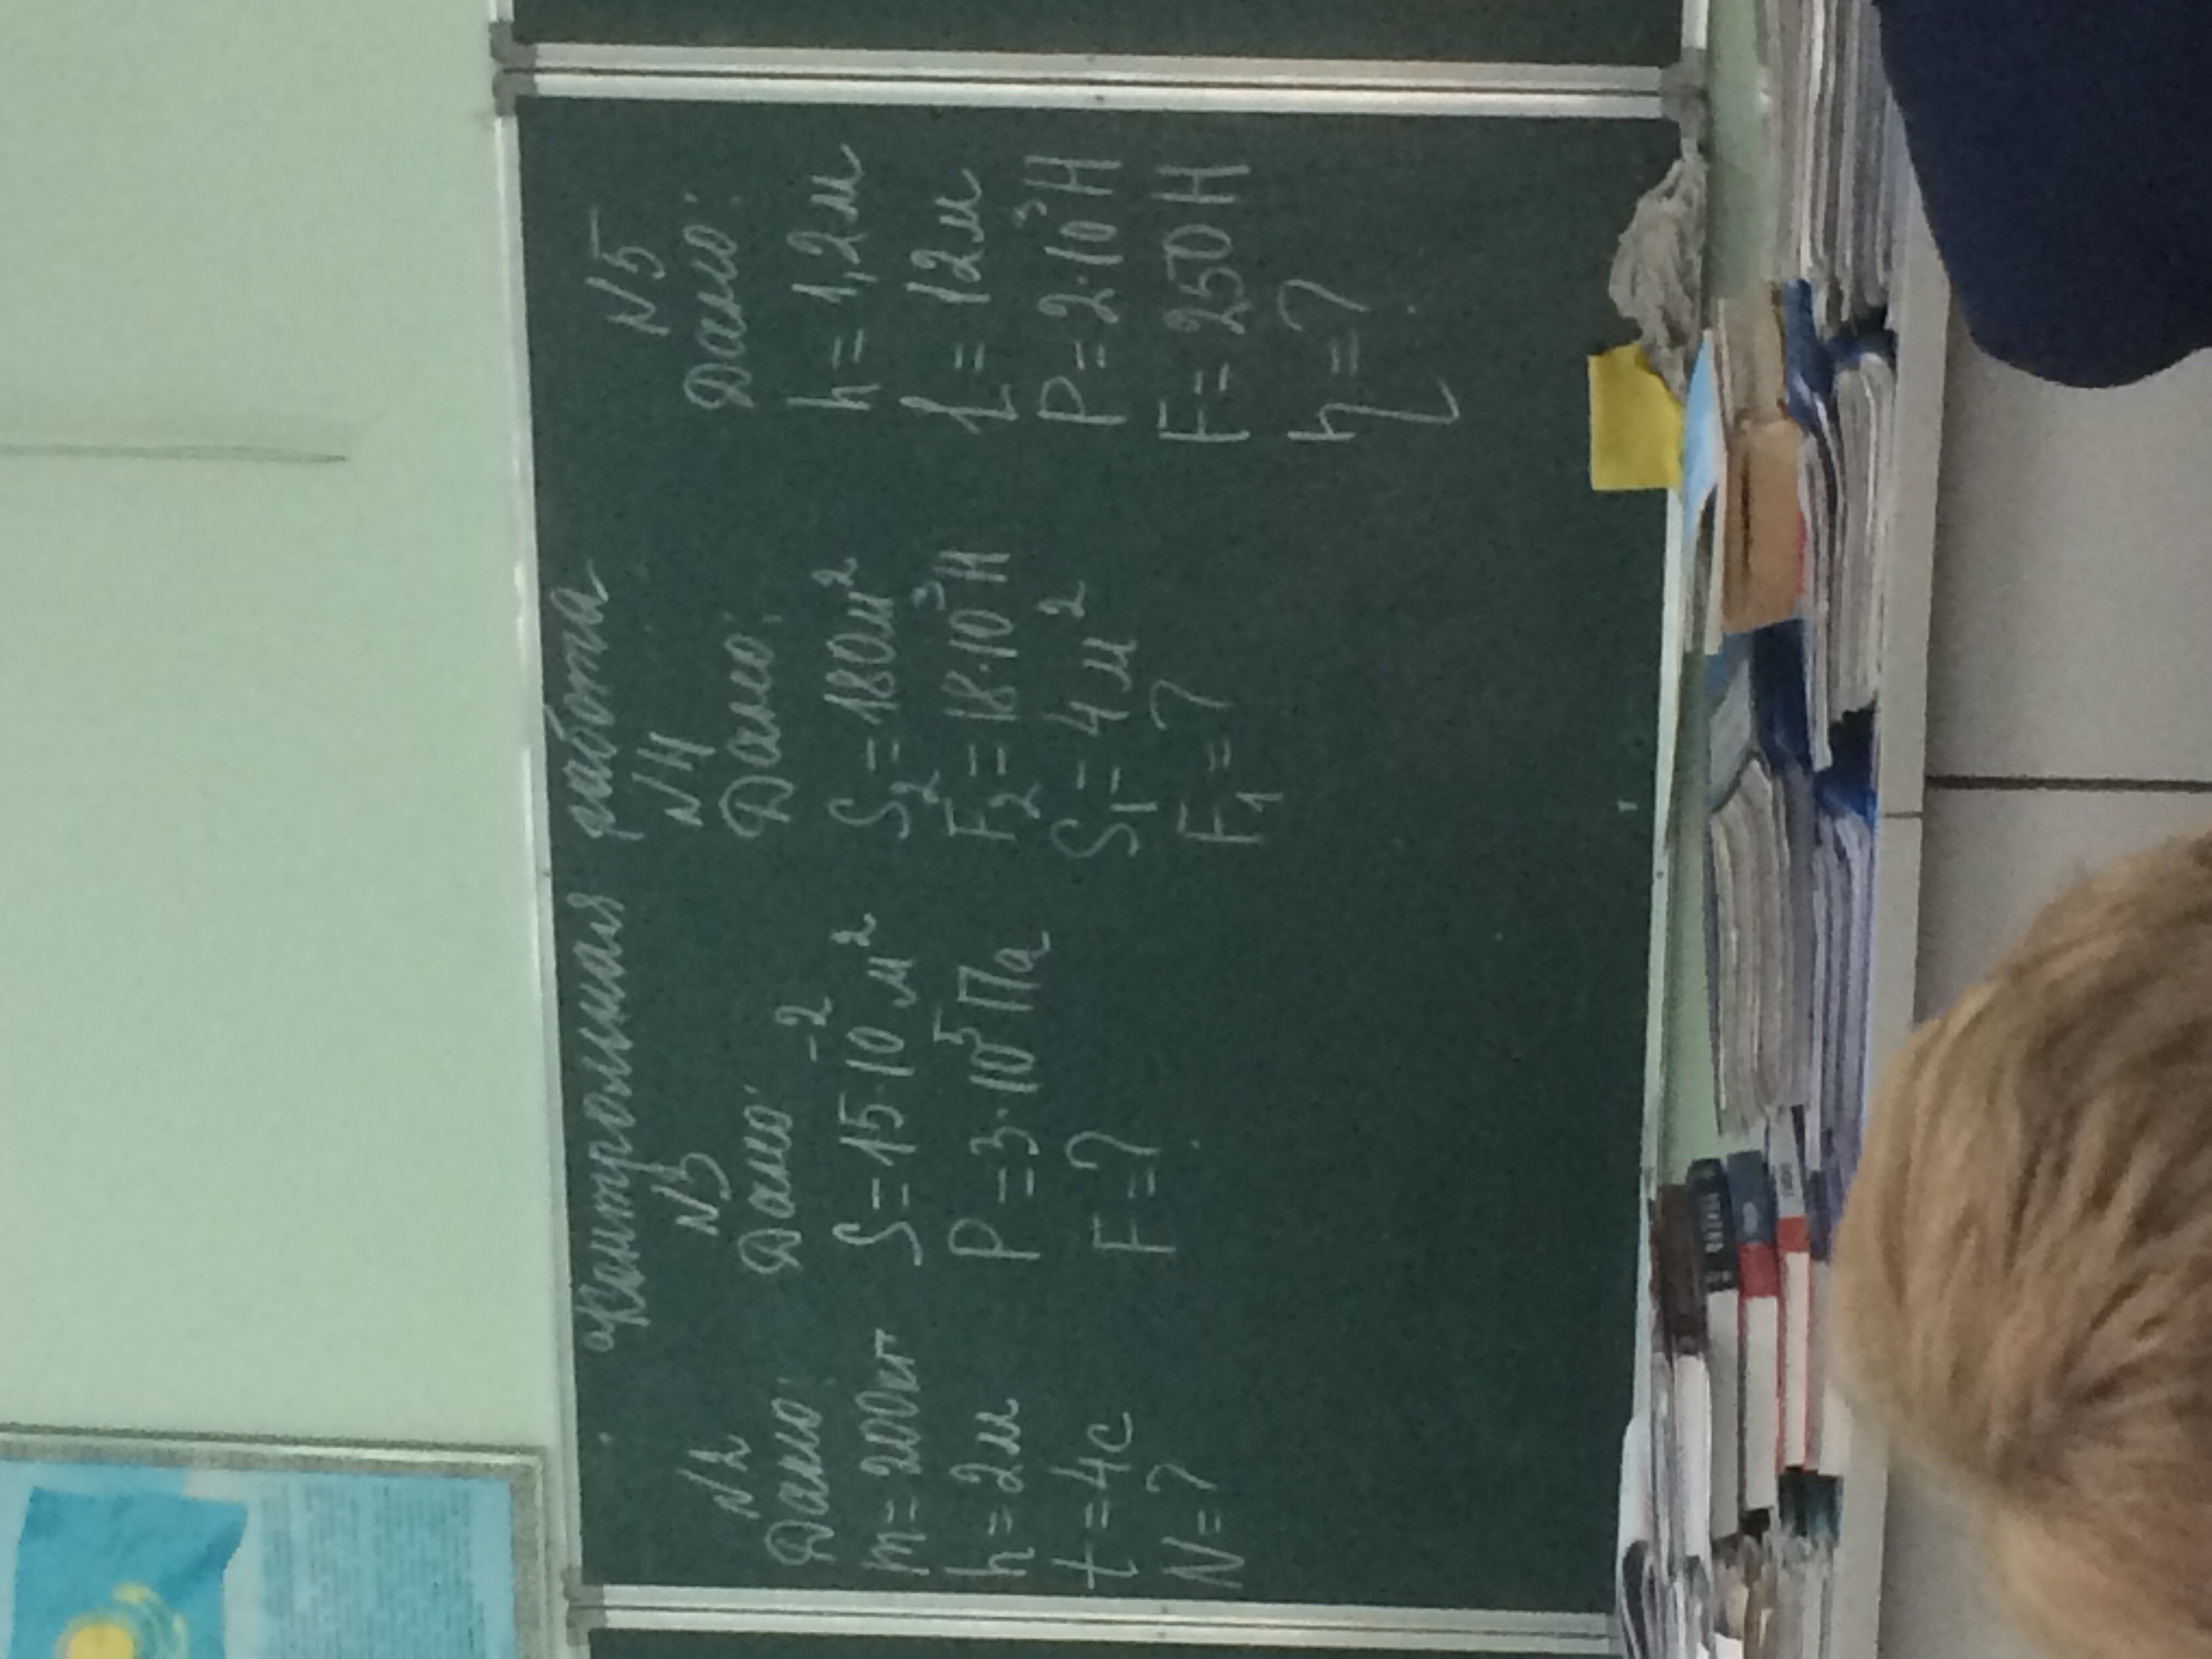 Контрольная работа
N2
Дано:
m=200кг
h=2м
t=4с
N=?
N3
Дано:
S=15·10⁻²м²
P=3·10⁵Па
F=?
N4
Дано:
S₂=180м²
F₂=18·10³Н
S₁=4м²
F₁=?
N5
Дано:
h=1,2м
ℓ=12м
P=2·10³Н
F=250Н
η=?